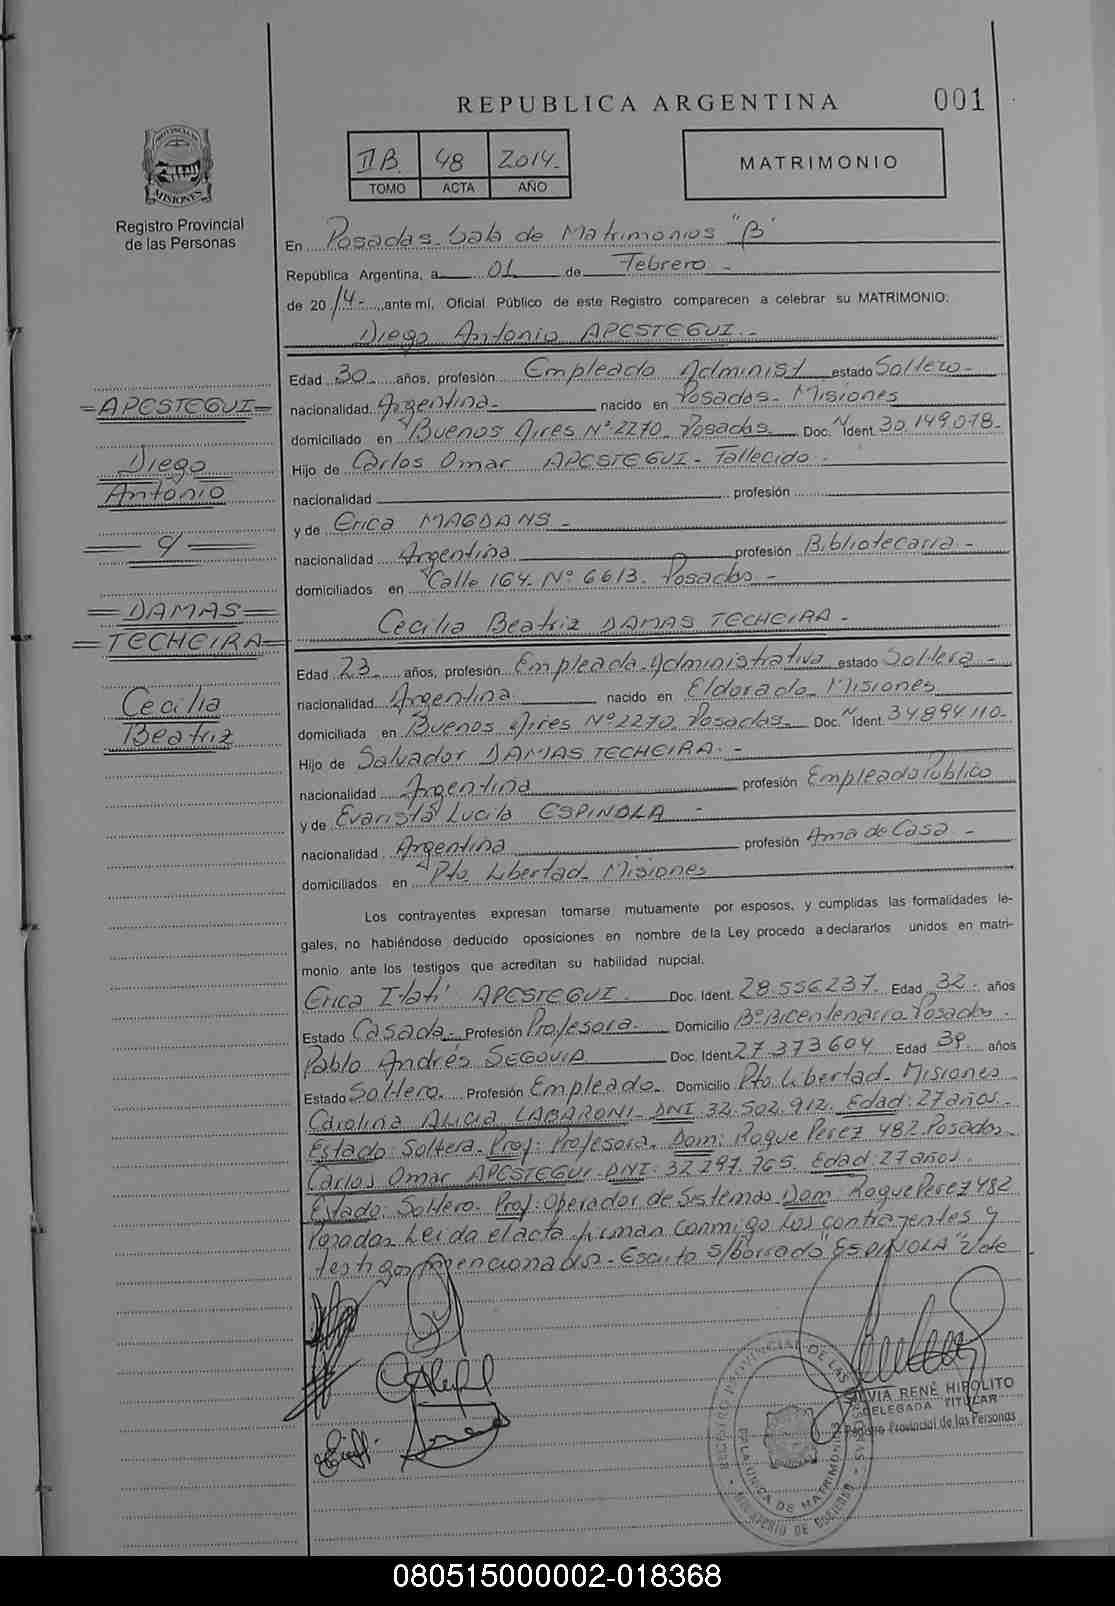 REPUBLICA ARGENTINA 001
PROVINCIA DE
MISIONES
Registro Provincial
de las Personas
II B. 48 2014.-
TOMO ACTA AÑO
MATRIMONIO
En Posadas. Sala de Matrimonios "B"
República Argentina, a 01 de Febrero -
de 2014.- ante mí, Oficial Público de este Registro comparecen a celebrar su MATRIMONIO:
Diego Antonio APESTEGUI.-
Edad 30 años, profesión Empleado Administ estado Soltero-
=APESTEGUI= nacionalidad Argentina- nacido en Posadas- Misiones
domiciliado en Buenos Aires Nº 2270. Posadas. Doc. Ident. 30.149.078-
Diego Hijo de Carlos Omar APESTEGUI - Fallecido -
Antonio nacionalidad profesión
y de Erica MAGDANS -
c/ nacionalidad Argentina. profesión Bibliotecaria -
domiciliados en Calle 164. Nº 6613. Posadas -
=DAMAS=
=TECHEIRA= Cecilia Beatriz DAMAS TECHEIRA -
Edad 23 años, profesión Empleada Administrativa estado Soltera -
Cecilia nacionalidad Argentina nacido en Eldorado- Misiones
Beatriz domiciliada en Buenos Aires Nº 2270. Posadas- Doc. Ident. 34894110-
Hijo de Salvador DAMAS TECHEIRA. -
nacionalidad Argentina profesión Empleado Público
y de Evarista Lucila ESPINOLA -
nacionalidad Argentina profesión Ama de Casa -
domiciliados en Pto. Libertad- Misiones
Los contrayentes expresan tomarse mutuamente por esposos, y cumplidas las formalidades le-
gales, no habiéndose deducido oposiciones en nombre de la Ley procedo a declararlos unidos en matri-
monio ante los testigos que acreditan su habilidad nupcial.
Erica Itatí APESTEGUI. Doc. Ident. 28.556.237. Edad 32.- años
Estado Casada.- Profesión Profesora. Domicilio Bº Bicentenario-Posadas -
Pablo Andrés SEGOVIA Doc. Ident. 27.373.604 Edad 39. años
Estado Soltero. Profesión Empleado. Domicilio Pto. Libertad- Misiones
Carolina Alicia LABARONI- DNI 32.502.912. Edad: 27 años.-
Estado: Soltera. Prof: Profesora. Dom: Roque Perez 482. Posadas-
Carlos Omar APESTEGUI. DNI: 32.297.765. Edad: 27 años.
Estado: Soltero. Prof: Operador de Sistemas. Dom Roque Perez 482
Posadas. Leida el acta firman conmigo los contrayentes y
testigos mencionados.- Escrito s/borrado "ESPINOLA" Vale
REGISTRO PROVINCIAL DE LAS PERSONAS
MINISTERIO DE GOBIERNO
SILVIA RENÉ HIPOLITO
DELEGADA TITULAR
Registro Provincial de las Personas
080515000002-018368